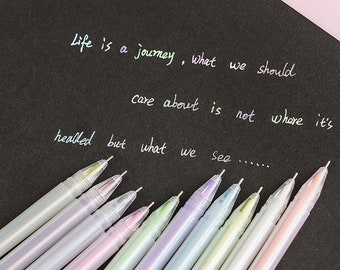 Life is a journey, what we should
care about is not where it's
headed but what we see......